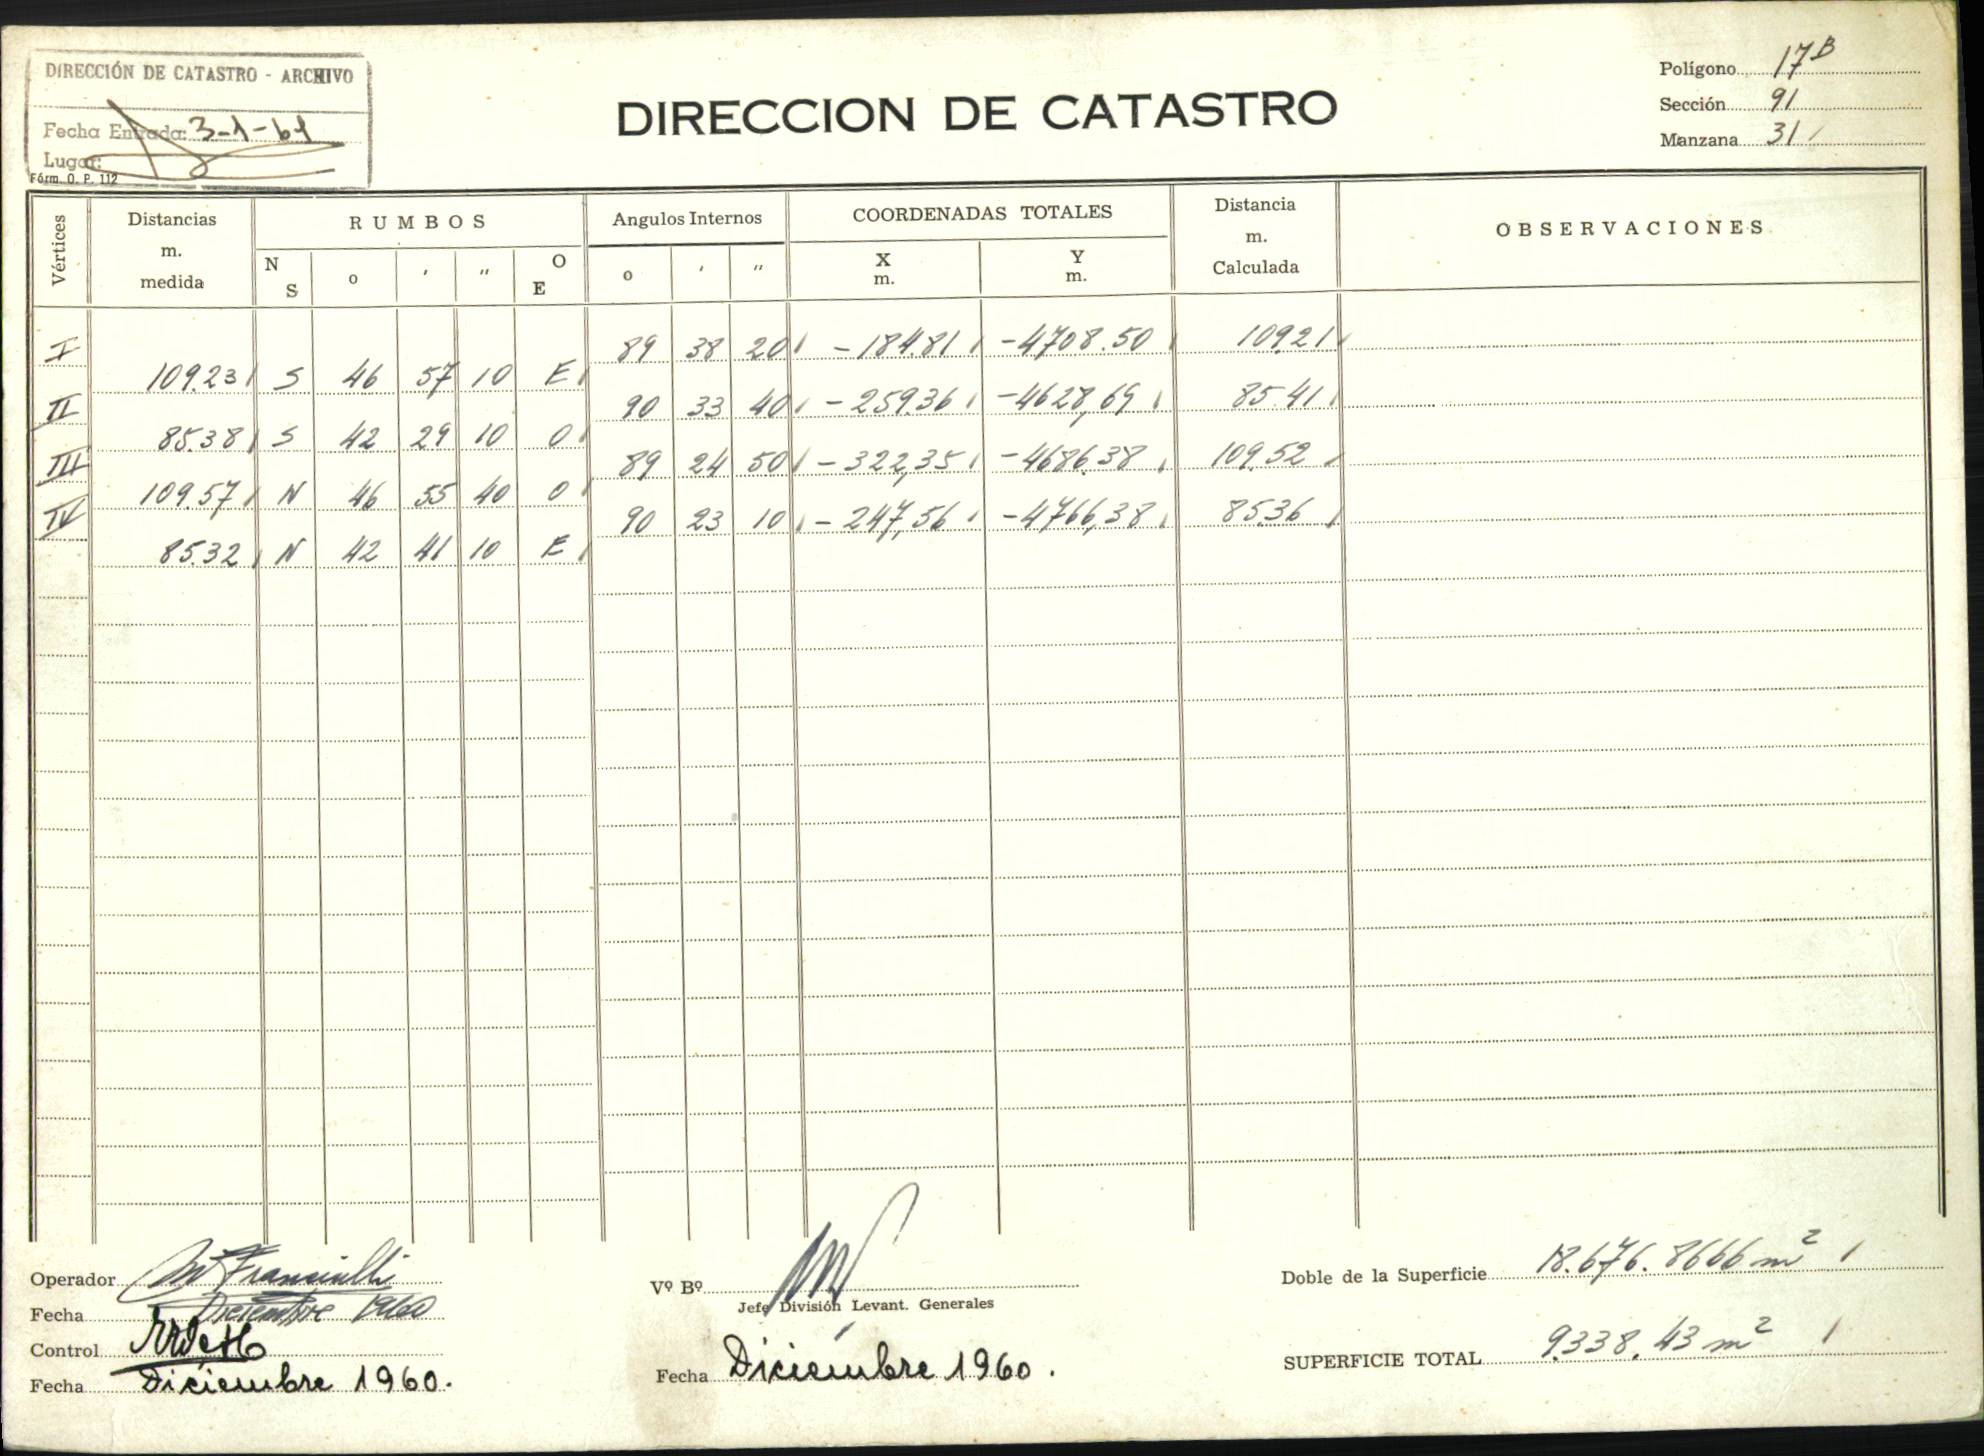 DIRECCIÓN DE CATASTRO - ARCHIVO
Fecha Entrada: 3-1-61
Lugar:
Fórm. O. P. 112
DIRECCION DE CATASTRO
Polígono 17B
Sección 91
Manzana 31
Vértices Distancias m. medida RUMBOS Angulos Internos COORDENADAS TOTALES Distancia m. Calculada OBSERVACIONES
N S o ' " O E o ' " X m. Y m.
I 89 38 20 -184.81 -4708.50 109.21
109.23 S 46 57 10 E
II 90 33 40 -259.36 -4628,69 85.41
85.38 S 42 29 10 O
III 89 24 50 -322,35 -4686.38 109.52
109.57 N 46 55 40 O
IV 90 23 10 -247,56 -4766,38 85.36
85.32 N 42 41 10 E
Operador
Fecha Diciembre 1960
Control
Fecha Diciembre 1960.
Vº Bº
Jefe División Levant. Generales
Fecha Diciembre 1960.
Doble de la Superficie 18.676.8666 m2
SUPERFICIE TOTAL 9.338.43 m2